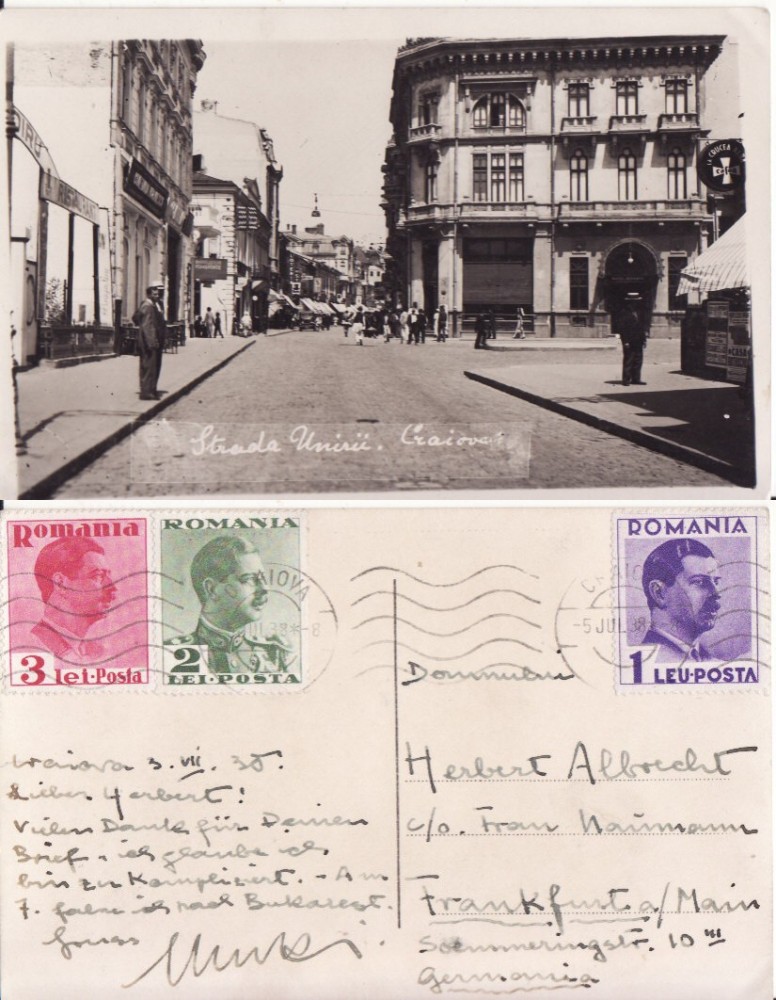 RESTAURANT
CRUCEA
Strada Unirii. Craiova
ROMANIA
3 lei·Posta
ROMANIA
2
LEI·POSTA
CRAIOVA
JUL 38 *-8
ROMANIA
1 LEU·POSTA
-5 JUL 38
Domnului
Herbert Albrecht
c/o. Frau Naumann
Frankfurt a/Main
Soemmeringstr. 10 III
Germania
Craiova 3. VII. 38.
Lieber Herbert!
Vielen Dank für Deinen
Brief. ich glaube ich
bin zu Kompliziert. – Am
7. fahre ich nach Bukarest.
Gruss